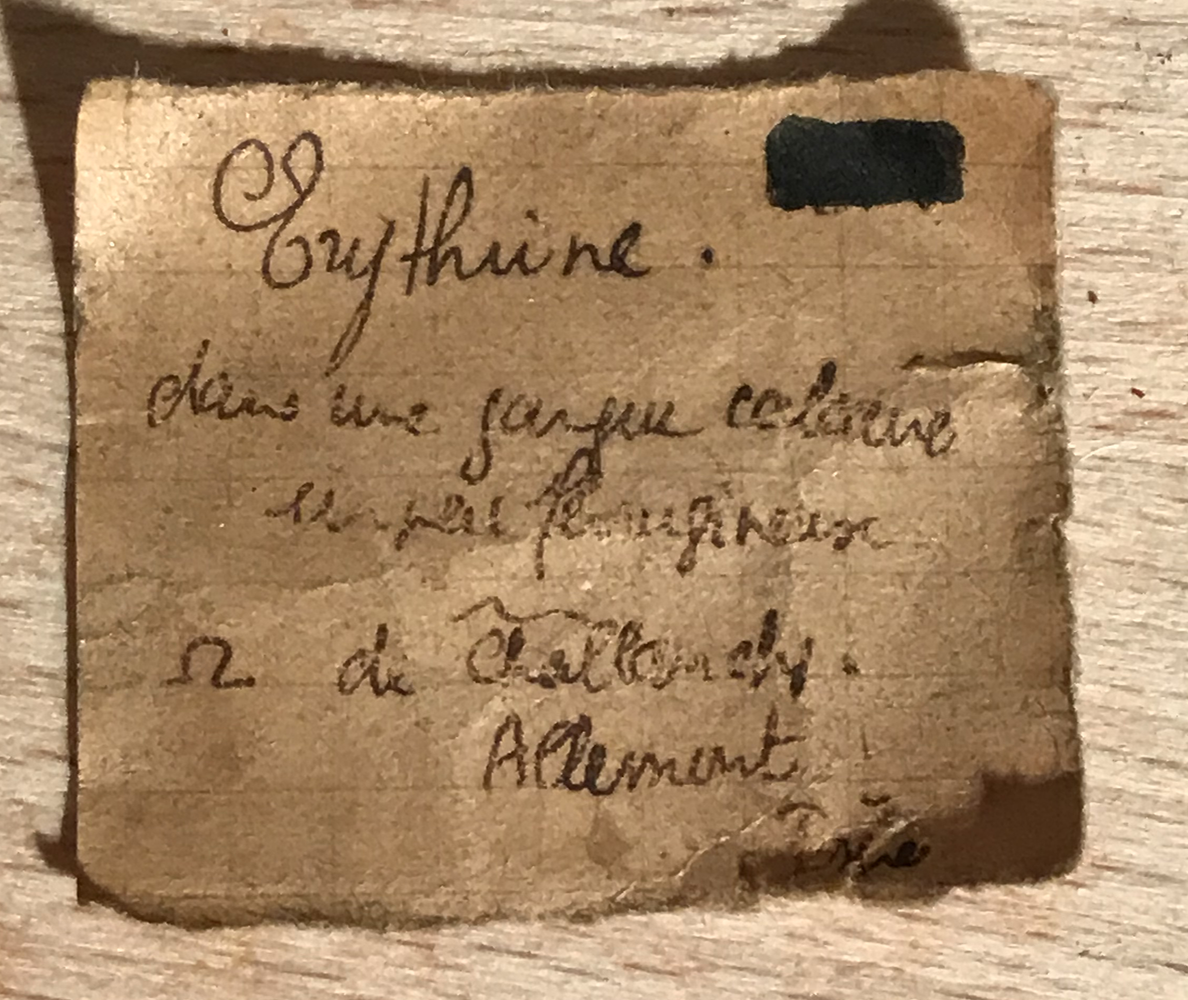 Erythrine.
dans une gangue calcaire
un peu ferrugineuse
Ω de Challanches.
Allemont
Isère